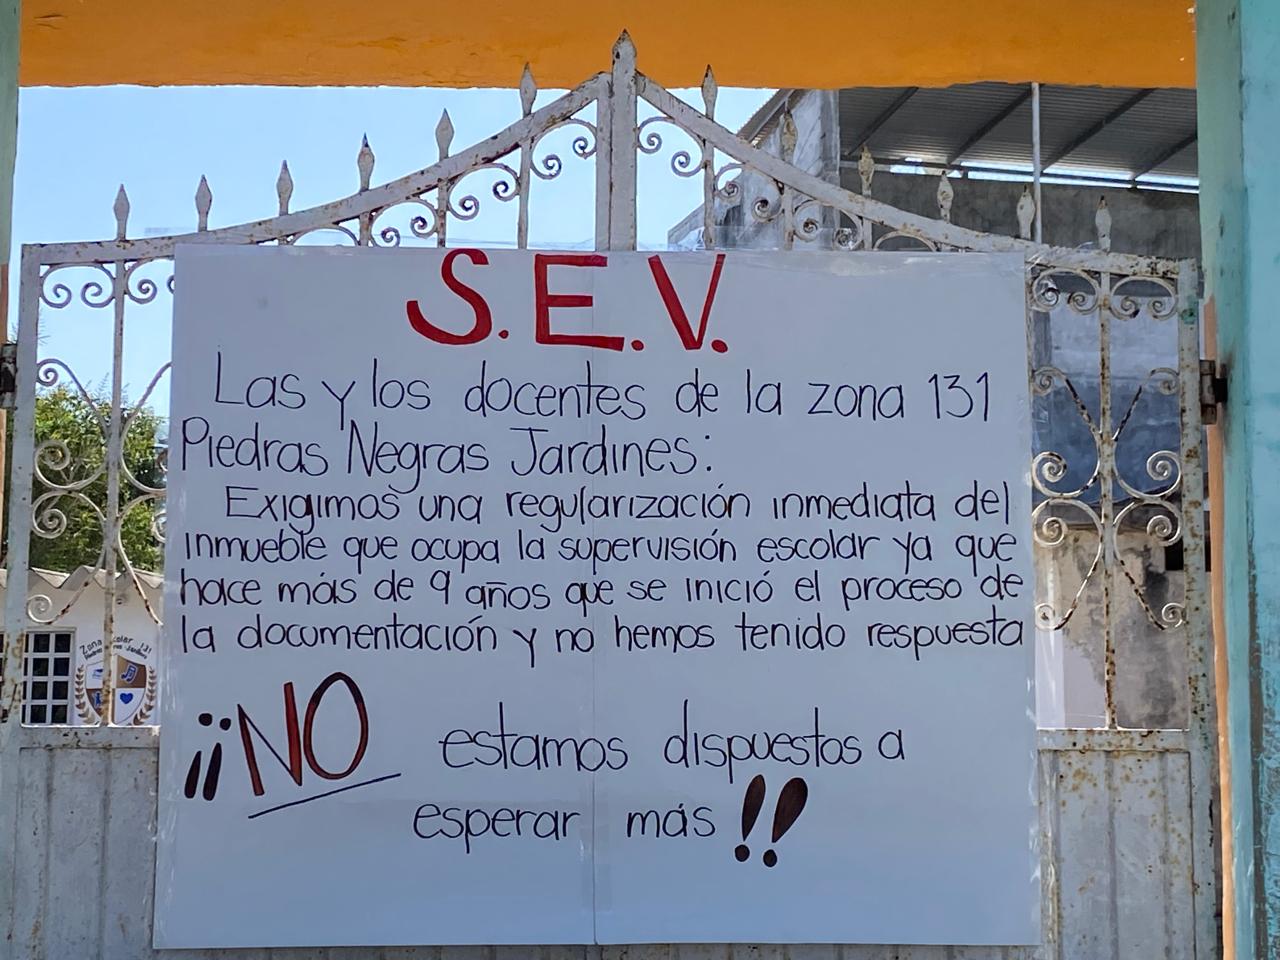 S.E.V.
Las y los docentes de la zona 131
Piedras Negras Jardines:
Exigimos una regularización inmediata del
inmueble que ocupa la supervisión escolar ya que
hace más de 9 años que se inició el proceso de
la documentación y no hemos tenido respuesta
¡¡NO estamos dispuestos a
esperar más!!
Zona Escolar 131
Piedras Negras Jardines